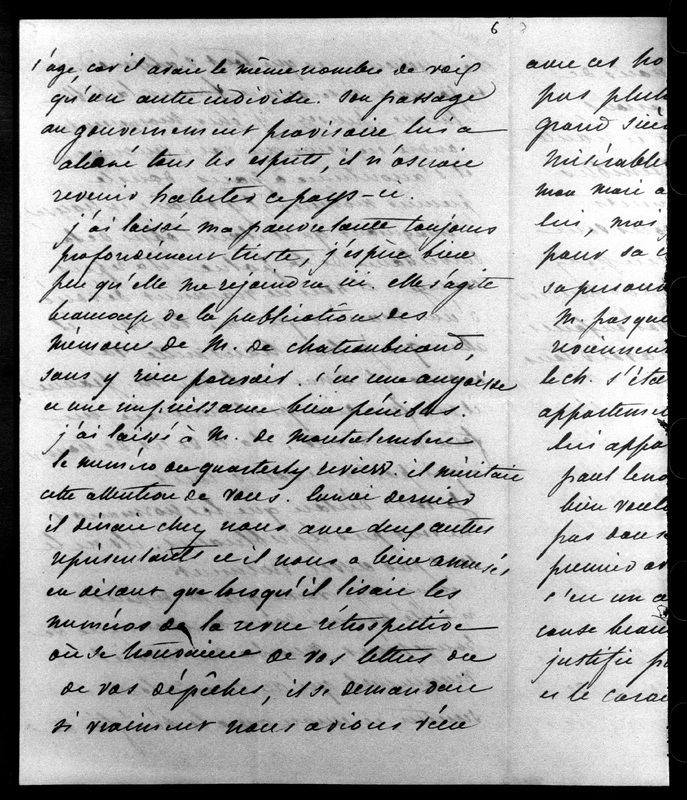 6
l'âge, car il avait le même nombre de voix
qu'un autre individu. Son passage
au gouvernement provisoire lui a
aliéné tous les esprits, il n'oserait
revenir habiter ce pays-ci.
j'ai laissé ma pauvre tante toujours
profondément triste, j'espère bien
peu qu'elle me rejoindra ici. elle s'agite
beaucoup de la publication des
Mémoires de M. de Chateaubriand,
sans y rien pouvoir. c'est une angoisse
et une impuissance bien pénibles.
j'ai laissé à M. de Montalembert
le numéro du quarterly review. il méritait
cette attention de vous. Lundi dernier
il dînait chez nous avec deux autres
représentants et il nous a bien amusés,
en disant que lorsqu'il lisait les
numéros de la revue rétrospective
où se trouvaient de vos lettres ou
de vos dépêches, il se demandait
si vraiment nous avions vécu
avec ces ho
pas plutô
grand siè
Misérable
mon mari a
lui, mais
pour sa
sa personn
M. pasqui
reviennent
le ch. s'éta
appartemen
lui appa
bien voul
pas dans
premier
c'est un
cause beau
justifie p
et le carac